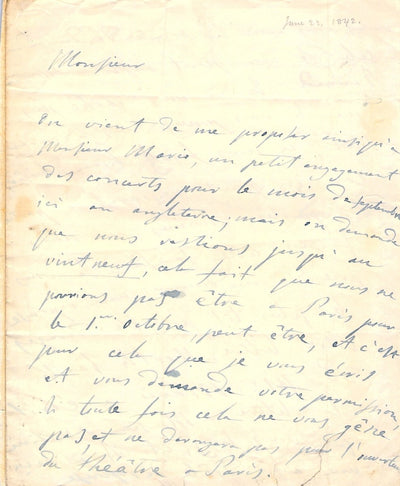 June 22, 1842.
Monsieur
On vient de me proposer ainsi qu'a
Monsieur Mario, un petit engagement
des concerts pour le mois de Septembre
ici en angleterre; mais on demande
que nous restions jusqu'au
vint neuf, cela fait que nous ne
pourions pas être a Paris pour
le 1er Octobre, peut être, et c'est
pour cela que je vous écris
et vous demande votre permission,
si toute fois cela ne vous gêne
pas, et ne derangera pas pour l'ouverture
du théâtre a Paris.